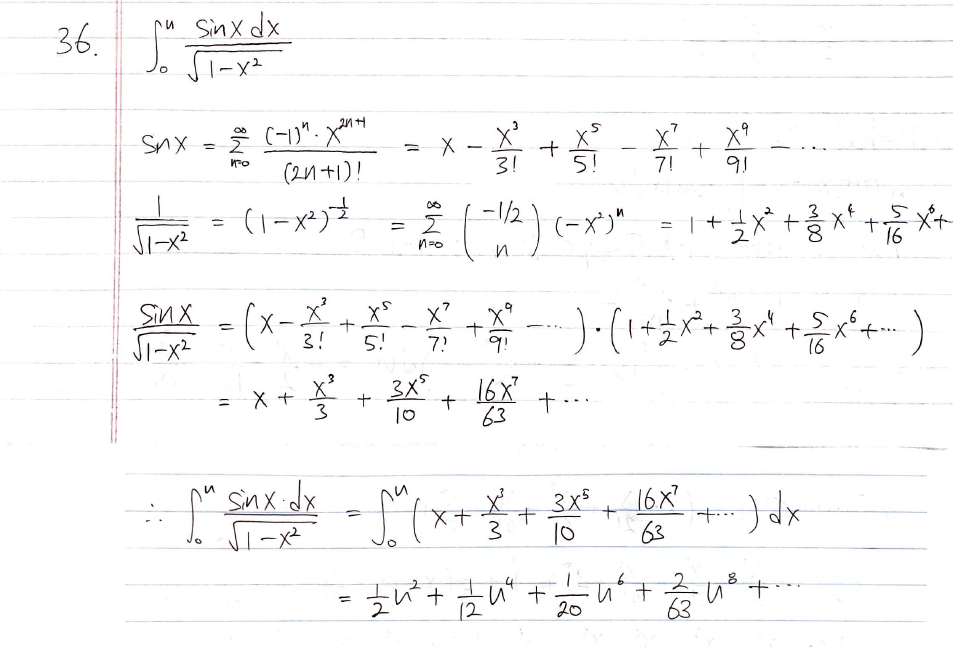 36. ∫₀ᵘ sinx dx / √(1-x²)
sinx = ∑_{n=0}^{∞} (-1)ⁿ · x²ⁿ⁺¹ / (2n+1)! = x - x³/3! + x⁵/5! - x⁷/7! + x⁹/9! - ...
1/√(1-x²) = (1-x²)^(-1/2) = ∑_{n=0}^{∞} (-1/2 n) (-x²)ⁿ = 1 + 1/2 x² + 3/8 x⁴ + 5/16 x⁶ +
sinx/√(1-x²) = (x - x³/3! + x⁵/5! - x⁷/7! + x⁹/9! - ...) · (1 + 1/2 x² + 3/8 x⁴ + 5/16 x⁶ + ...)
= x + x³/3 + 3x⁵/10 + 16x⁷/63 + ...
∴ ∫₀ᵘ sinx·dx / √(1-x²) = ∫₀ᵘ (x + x³/3 + 3x⁵/10 + 16x⁷/63 + ...) dx
= 1/2 u² + 1/12 u⁴ + 1/20 u⁶ + 2/63 u⁸ + ...